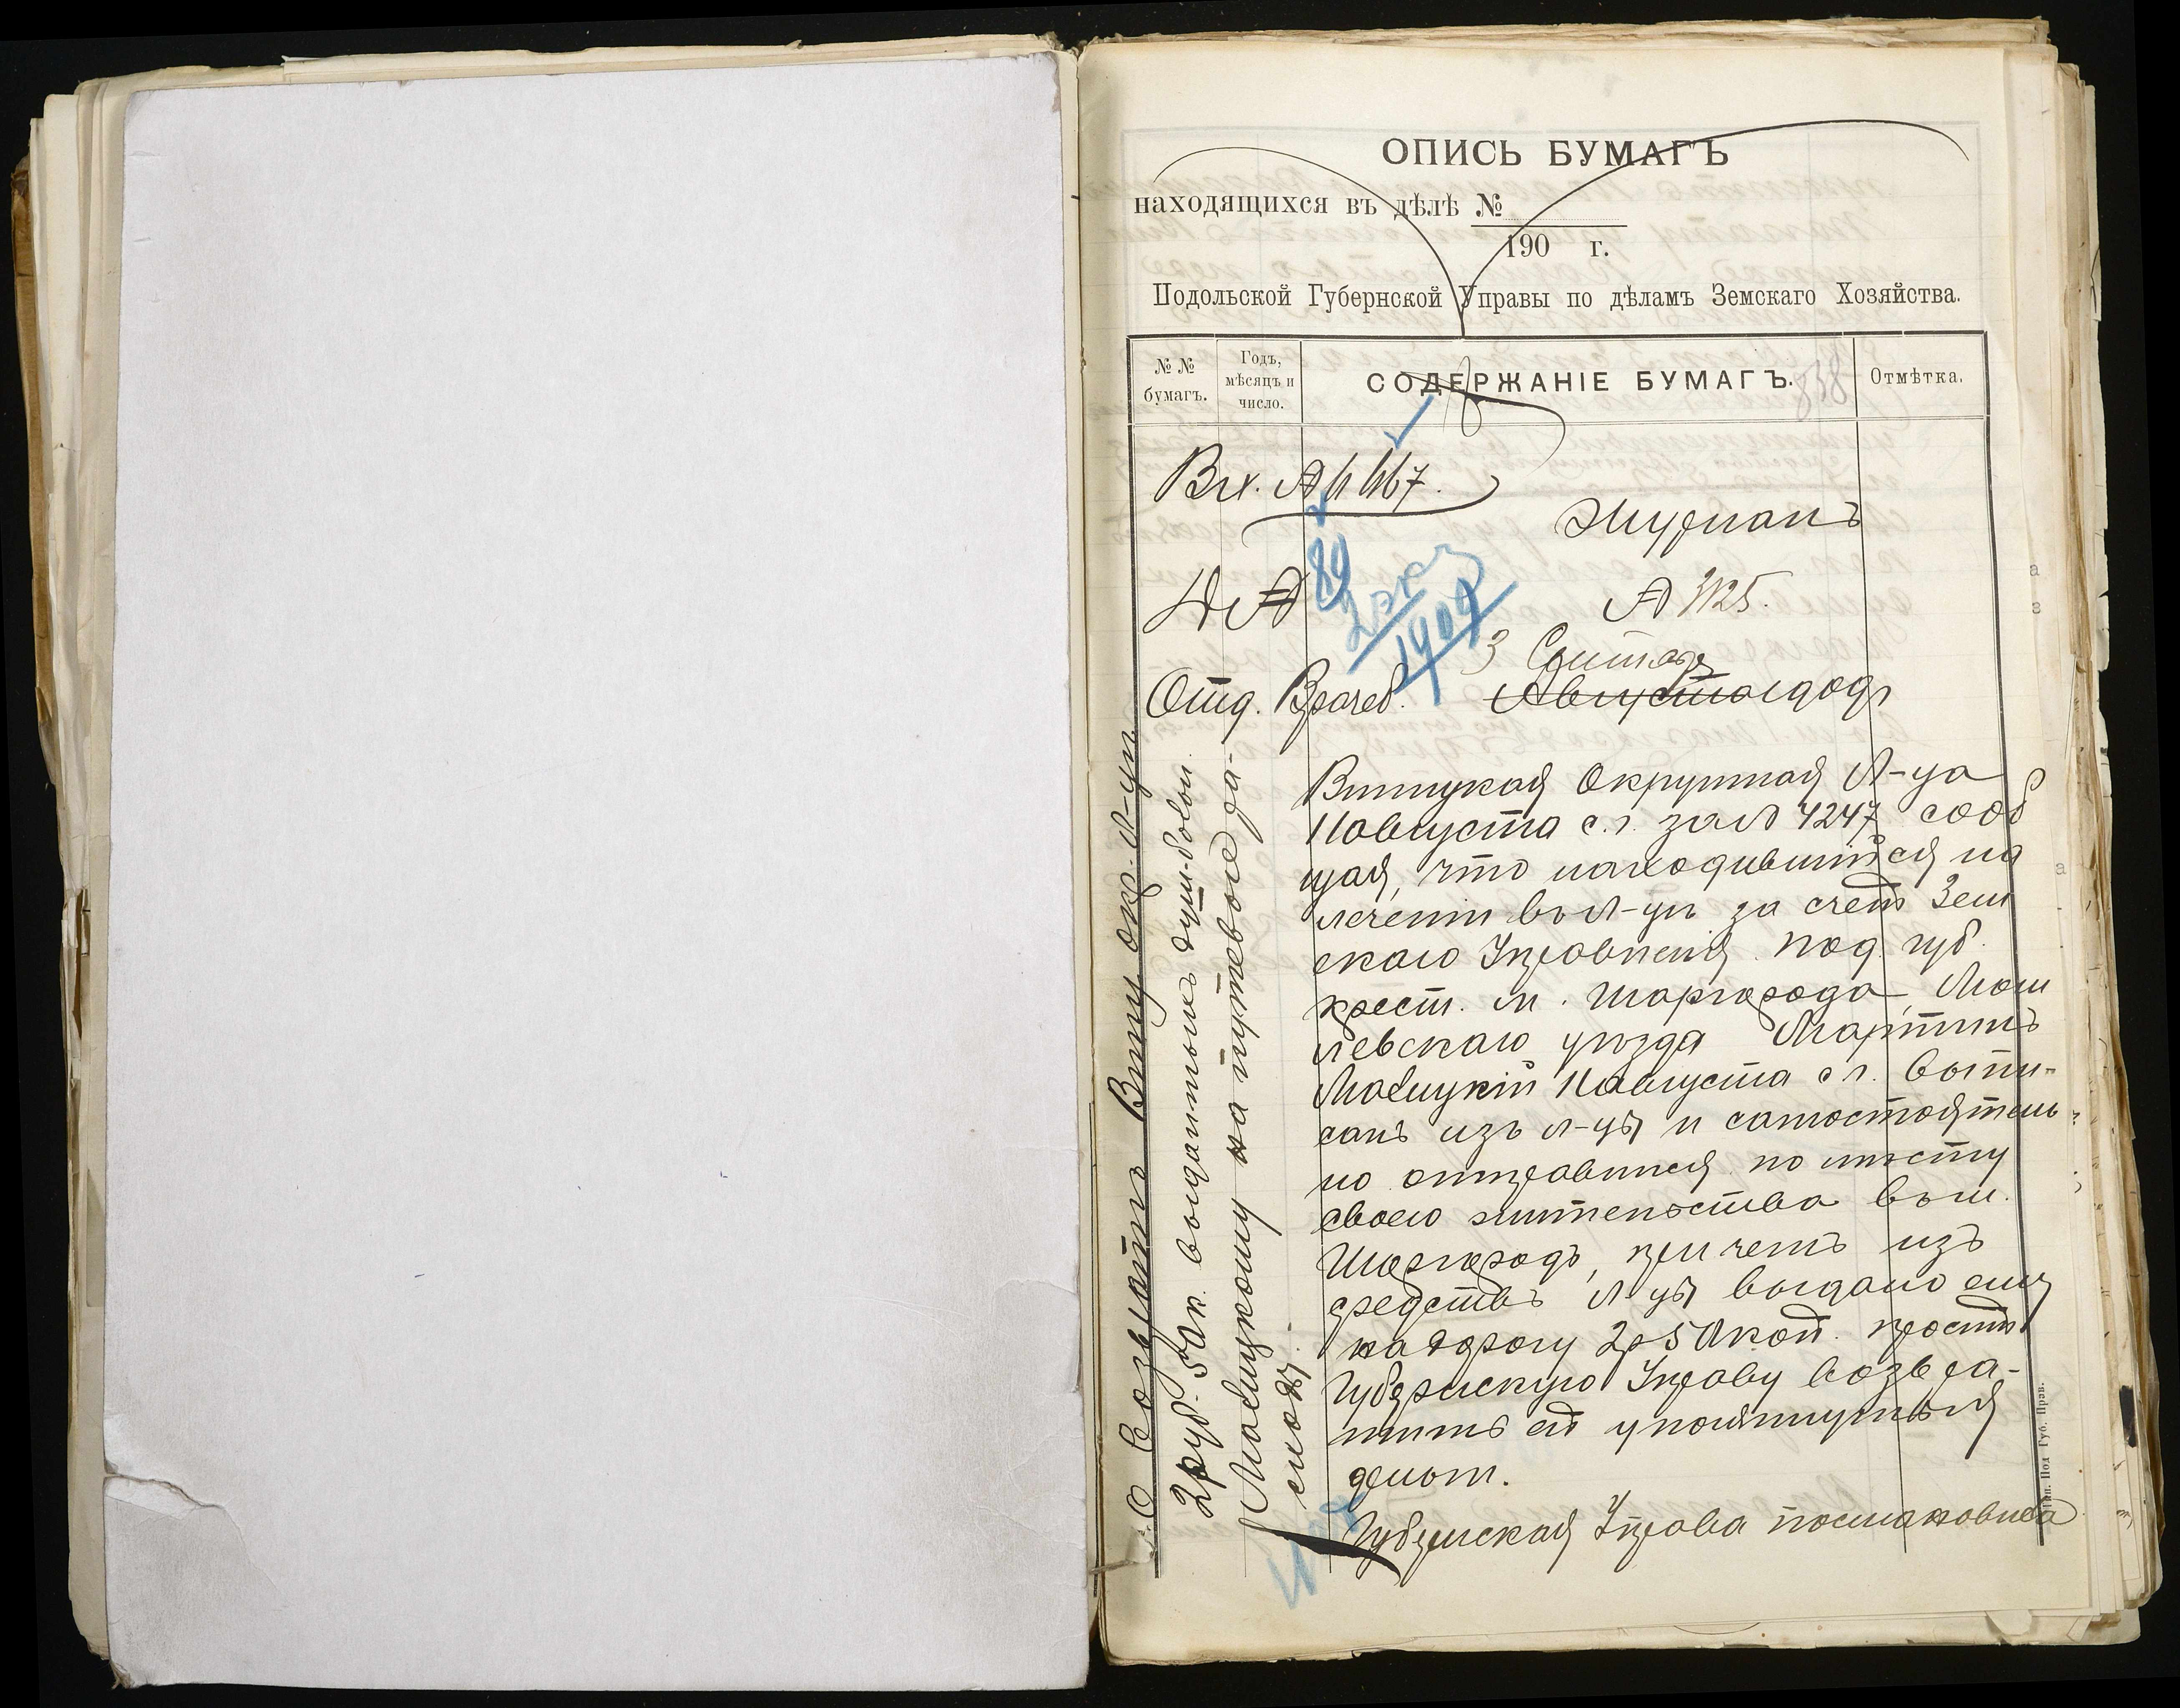 ОПИСЬ БУМАГЪ
находящихся въ дѣлѣ №
190 г.
Подольской Губернской Управы по дѣламъ Земскаго Хозяйства.
№ № бумагъ.
Годъ, мѣсяцъ и число.
СОДЕРЖАНІЕ БУМАГЪ.
Отмѣтка.
Вх. №
Журналъ
№
Отд. Врачеб.
3 Сентяб
Августа
Винницкая Окружная Л-ца
11 августа с. г. за № 4247 сооб
щая, что находившійся на
леченіи въ Л-цѣ за счетъ Зем
скаго Управленія под. губ.
крест. м. Шаргорода, Моги
левскаго уѣзда Мартинъ
11 августа с. г. выпи-
санъ изъ л-цы и самостоятель
но отправился по мѣсту
своего жительства въ м.
Шаргородъ, при чемъ изъ
средствъ Л-цы выдано ему
на дорогу 2 р 50 коп. проситъ
Губернскую Управу возвра-
тить ей упомянутыя
деньги.
Губернская Управа постановила
О возвратѣ Винн. окр. л-цѣ
2 руб. 50 к. выданныхъ душ.-бол.
на путевое до-
Тип. Под Губ. Прав.